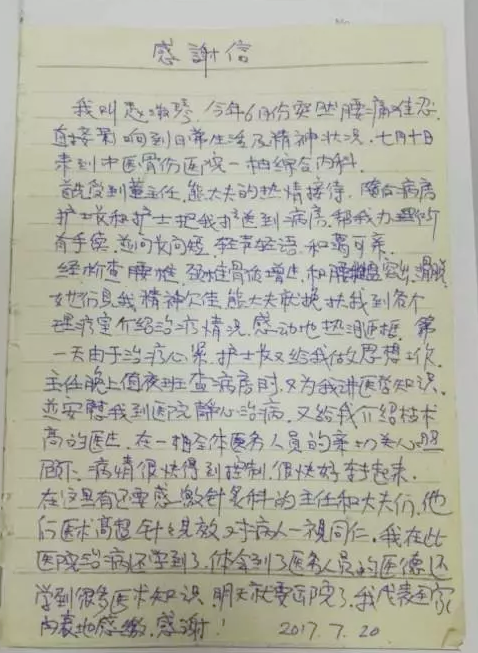 感謝信
我叫赵淑琴,今年6月份突然腰痛难忍,
直接影响到日常生活及精神状况,七月十日
来到中医骨伤医院一病综合内科,
就受到董主任,熊大夫的热情接待,随后病房
护士长和护士把我护送到病房,帮我办理所
有手续,并问长问短,轻声轻语,和蔼可亲,
经检查腰椎,颈椎骨质增生,和腰椎盘突出,滑脱,
她们见我精神欠佳,熊大夫就搀扶我到各个
理疗室介绍治疗情况,感动地热泪盈眶,第
一天由于治疗心累,护士长又给我做思想工作,
主任晚上值夜班查病房时,又为我讲医学知识,
并安慰我到医院静心治病,又给我介绍技术
高的医生,在一病全体医务人员的亲切关心照
顾下,病情很快得到控制,很快好转起来,
在这里有还要感激针灸科的主任和大夫们,他
们医术高超针针见效,对病人一视同仁,我在此
医院治病还学到了,体会到了医务人员的医德,还
学到很多医术知识,明天就要出院了,我代表全家
内衷地感激,感谢!
2017.7.20